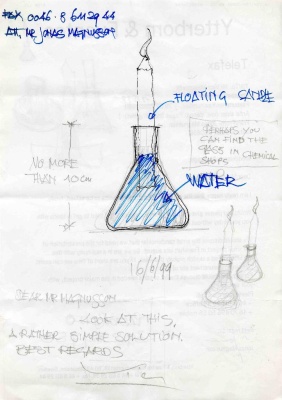 FAX 0046 · 8 6112944
ATT, MR JONAS MAGNUSSON
Ytterborn &
Telefax
FLOATING CANDLE
PERHAPS YOU
CAN FIND THE
GLASS IN CHEMICAL
SHOPS
NO MORE
THAN 10 cm
WATER
16/6/99
DEAR MR MAGNUSSON
LOOK AT THIS,
A RATHER SIMPLE SOLUTION.
BEST REGARDS